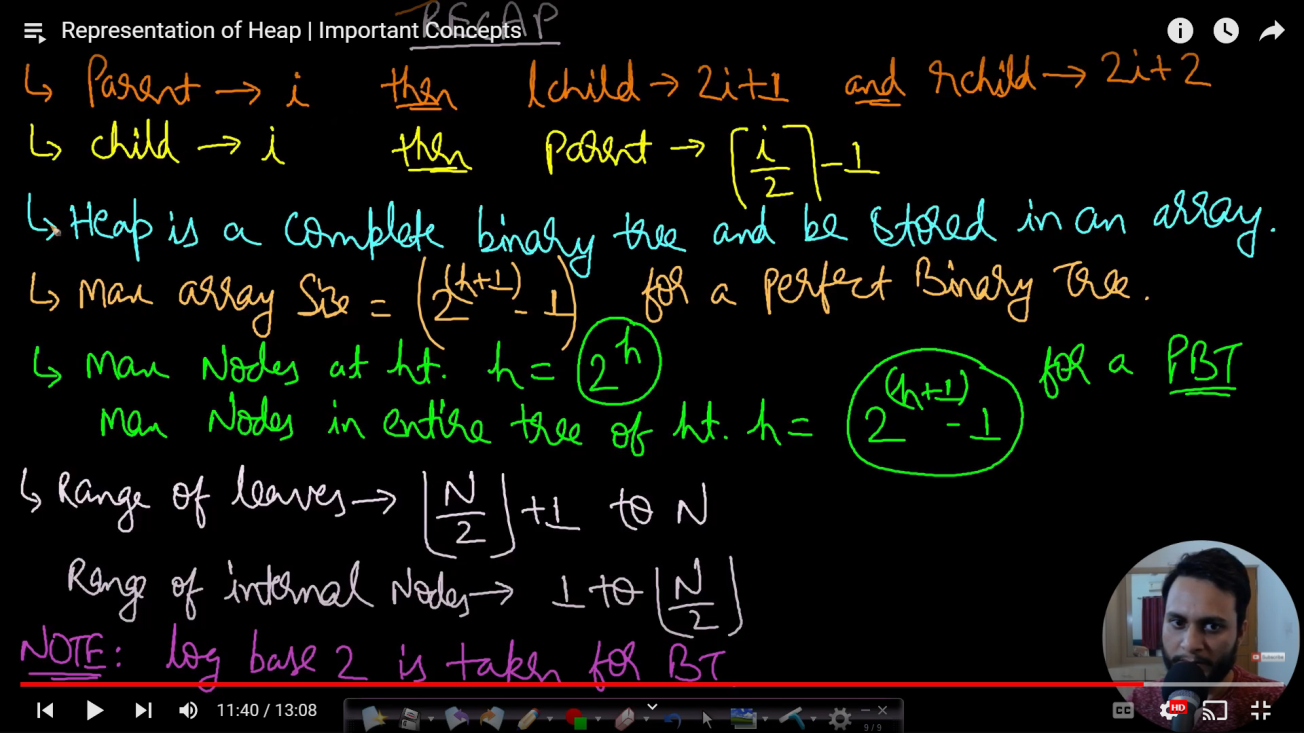 Representation of Heap | Important Concepts
RECAP
↳ Parent → i then lchild → 2i+1 and rchild → 2i+2
↳ child → i then Parent → ⌈i/2⌉ - 1
↳ Heap is a complete binary tree and be stored in an array.
↳ Max array Size = (2^(h+1) - 1) for a perfect Binary Tree.
↳ Max Nodes at ht. h = 2^h
Max Nodes in entire tree of ht. h = 2^(h+1) - 1 for a PBT
↳ Range of leaves → ⌊N/2⌋ + 1 to N
Range of internal Nodes → 1 to ⌊N/2⌋
NOTE: log base 2 is taken for BT
11:40 / 13:08
9/9
CC
HD